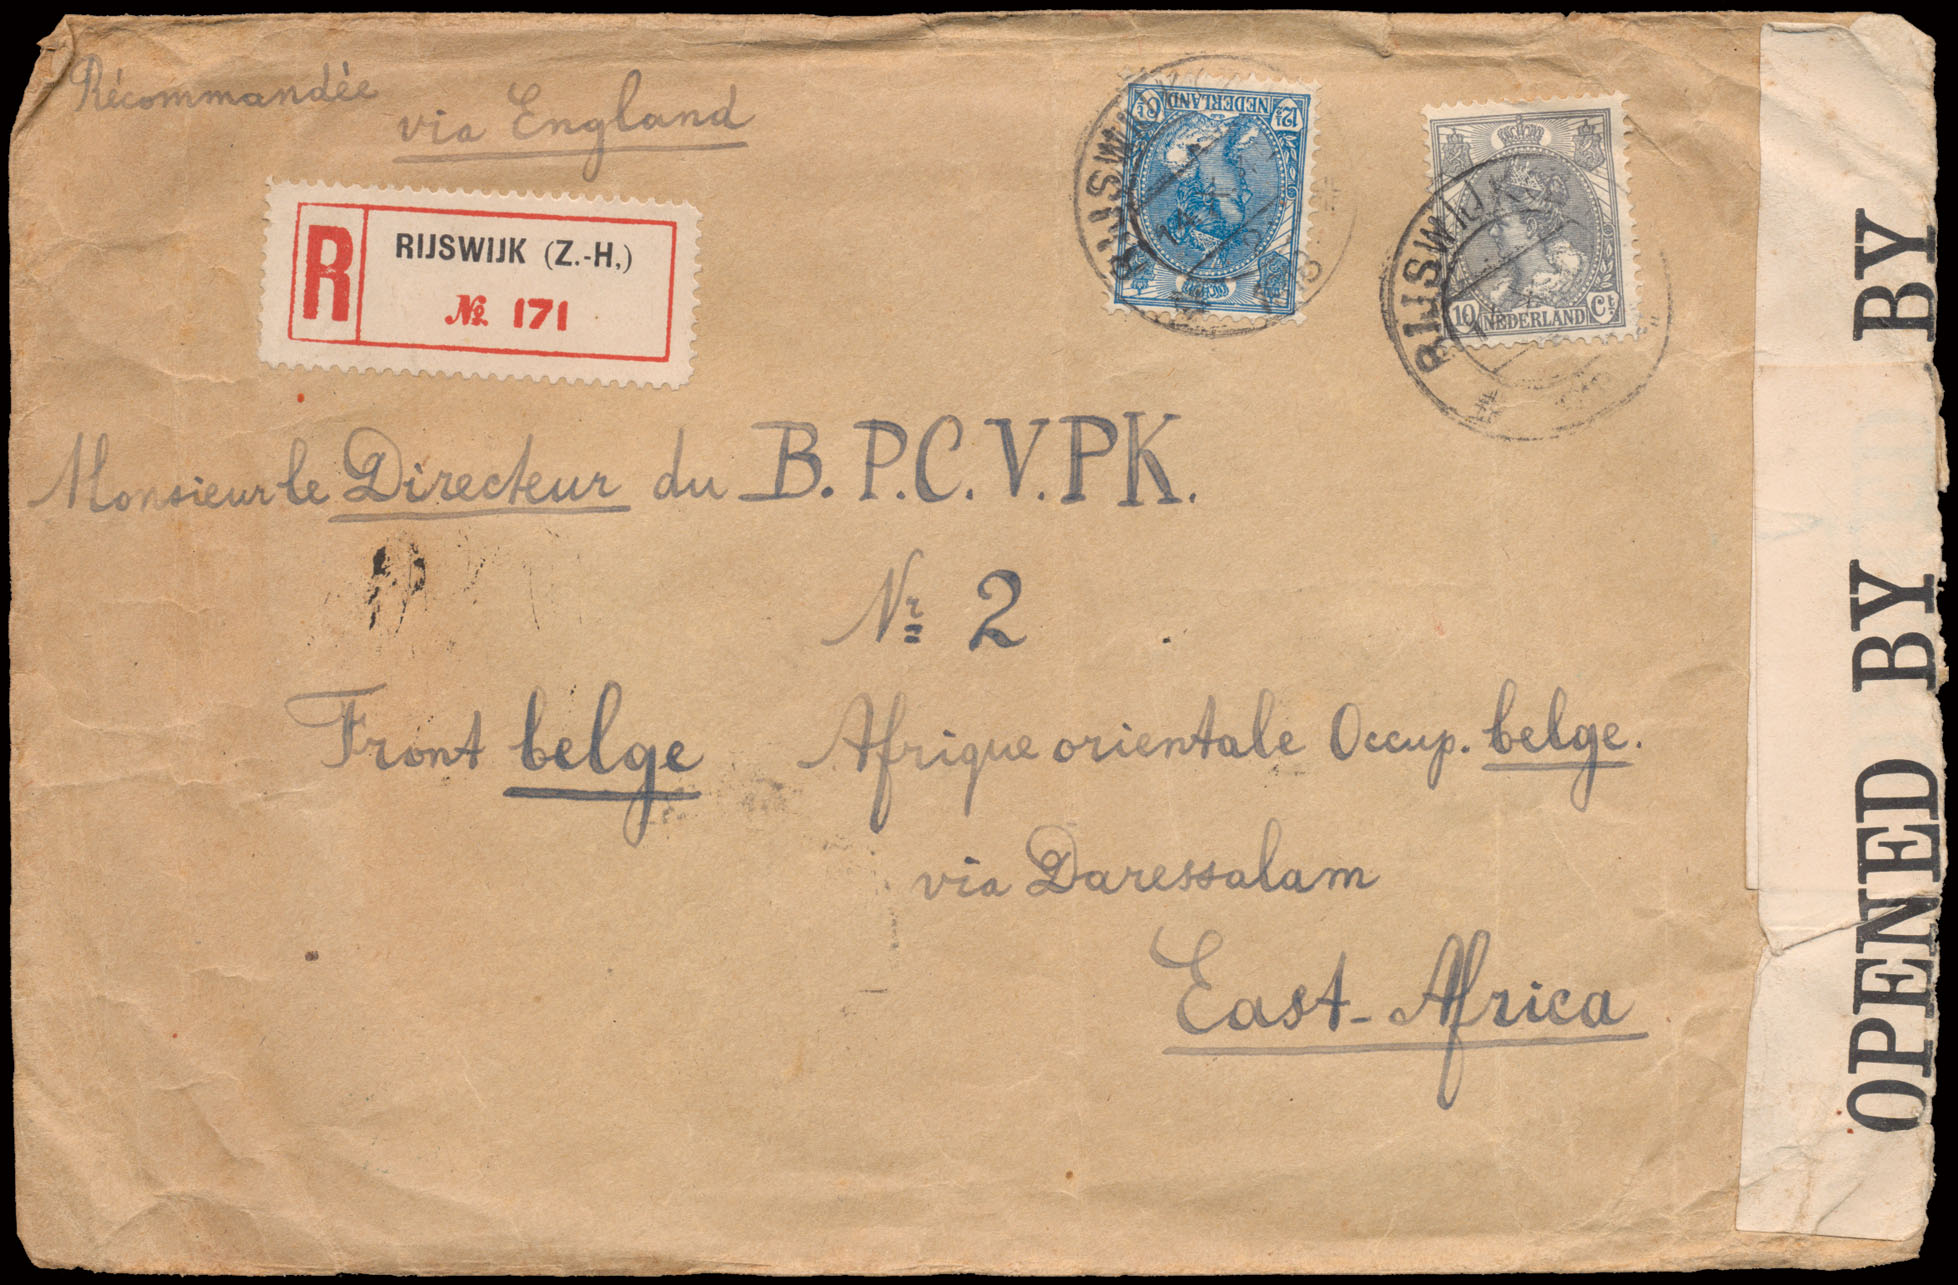 Récommandèe
via England
R
RIJSWIJK (Z.-H,)
№ 171
12½ NEDERLAND Ct
RIJSWIJK
10 NEDERLAND Ct
RIJSWIJK
Monsieur le Directeur du B.P.C.V.PK.
Nr 2
Front belge Afrique orientale Occup. belge.
via Daressalam
East-Africa
OPENED BY
BY